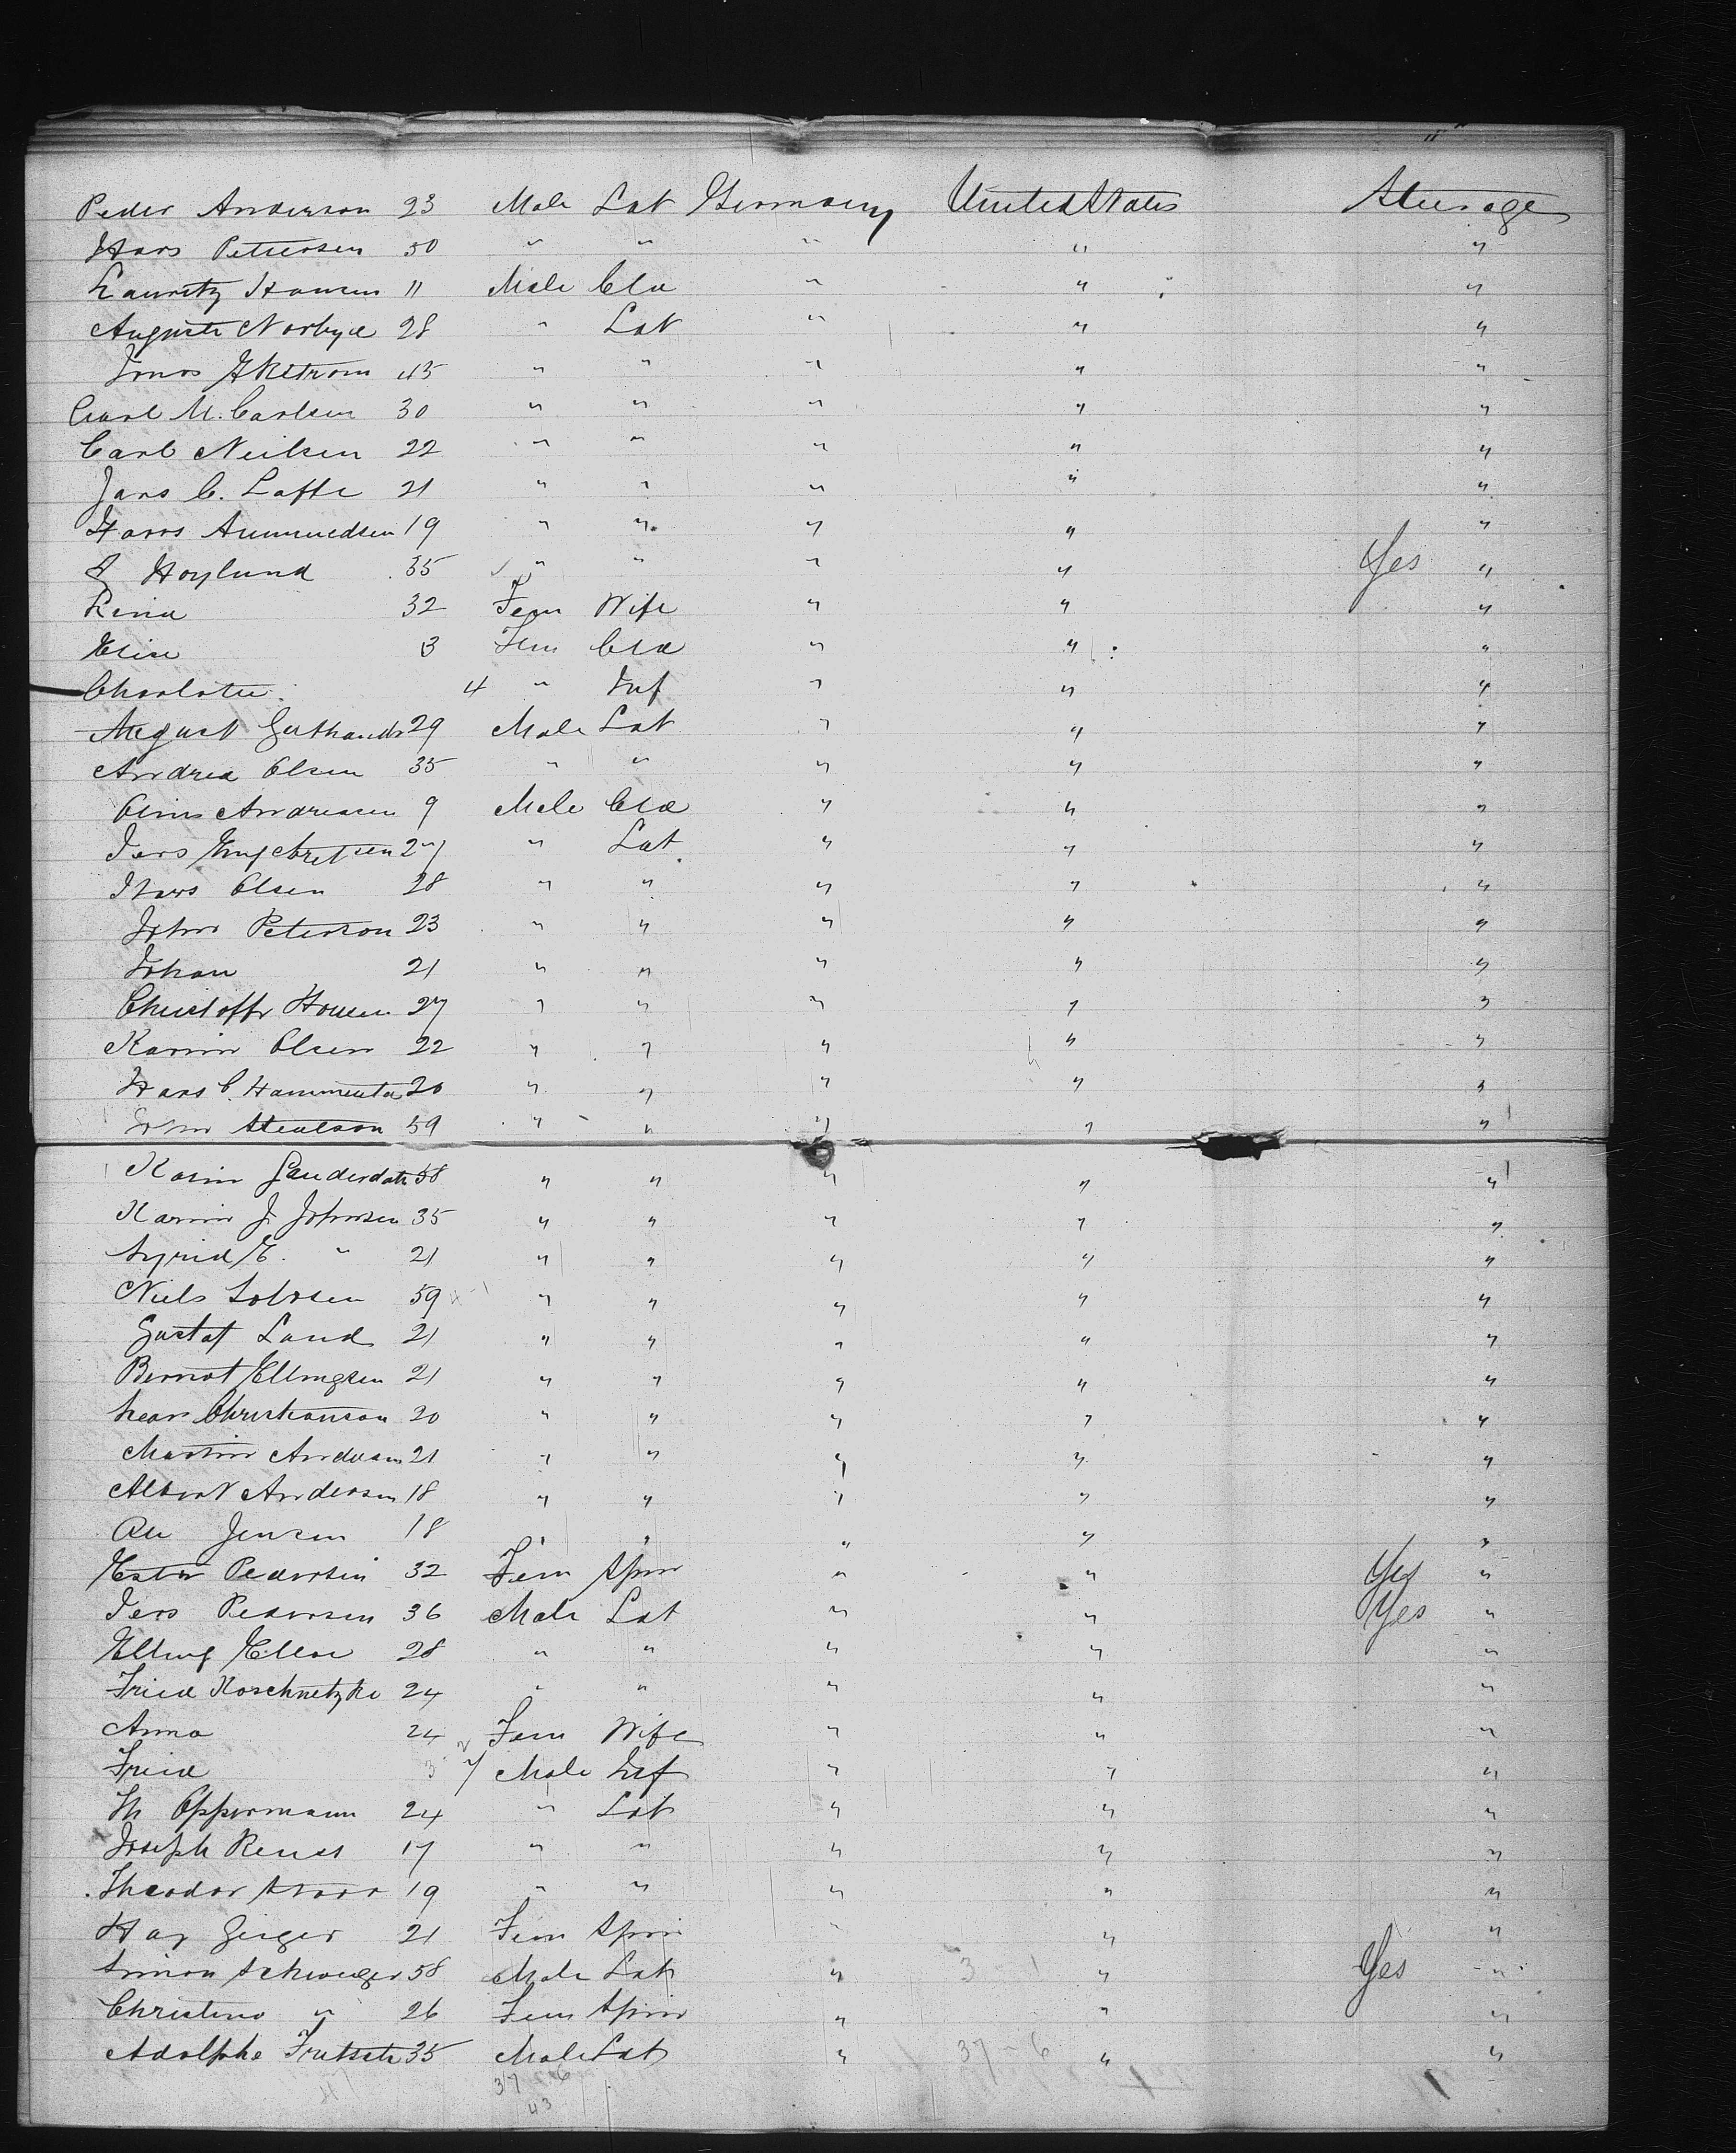 Peder Anderson 23 Male Lab Germany United States Steerage
Hans Petersen 50 " " " " "
Lauritz Hansen 11 Male Cld " " "
Auguste Norbye 28 " Lab " " "
Jonas 45 " " " " "
Carl M. Carlsen 30 " " " " "
Carl Neilsen 22 " " " " "
Jans C. Lofte 21 " " " " "
Hans Ammundsen 19 " " " " "
Hoylund 35 " " " " Yes "
Lina 32 Fem Wife " " "
Elise 3 Fem Cld " " "
Charlotte 4 " Inf " " "
August 29 Male Lab " " "
Andrea Olsen 35 " " " " "
Andreasen 9 Male Cld " " "
Jens Engebretsen 27 " Lab " " "
Hans Olsen 28 " " " " "
John Peterson 23 " " " " "
Johan 21 " " " " "
Christoffr Hansen 27 " " " " "
Karin Olsen 22 " " " " "
Hans C. 20 " " " " "
John 59 " " " " "
Karin 58 " " " " "
Karin J. Johnsen 35 " " " " "
Sigrid E. " 21 " " " " "
Niels 59 " " " " "
Gustaf Land 21 " " " " "
Bernat Ellingsen 21 " " " " "
Christianson 20 " " " " "
Martin Andersen 21 " " " " "
Albert Andersen 18 " " " " "
Ole Jensen 18 " " " " "
Ester Pedersen 32 Fem Spin " " Yes "
Jens Pedersen 36 Male Lab " " Yes "
Elling 28 " " " " "
Fried Koschnetzke 24 " " " " "
Anna 24 Fem Wife " " "
Fried 7 Male Inf " " "
Th Oppermann 24 " Lab " " "
Joseph Reuss 17 " " " " "
Theodor 19 " " " " "
Geiger 21 Fem Spin " " "
Simon Schweiger 58 Male Lab " " Yes "
Christine " 26 Fem Spin " " "
Adolphe 35 Male Lab 37-6 " " "
37 6
43